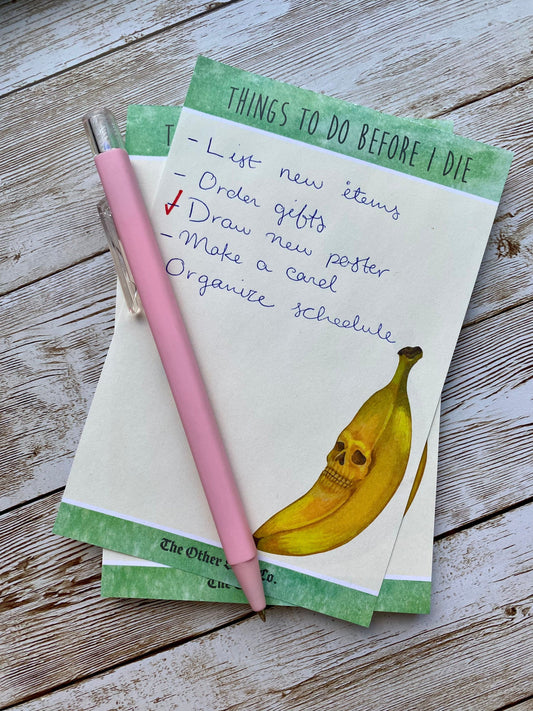 THINGS TO DO BEFORE I DIE
- List new items
- Order gifts
- Draw new poster
- Make a card
Organize schedule
The Other Co.